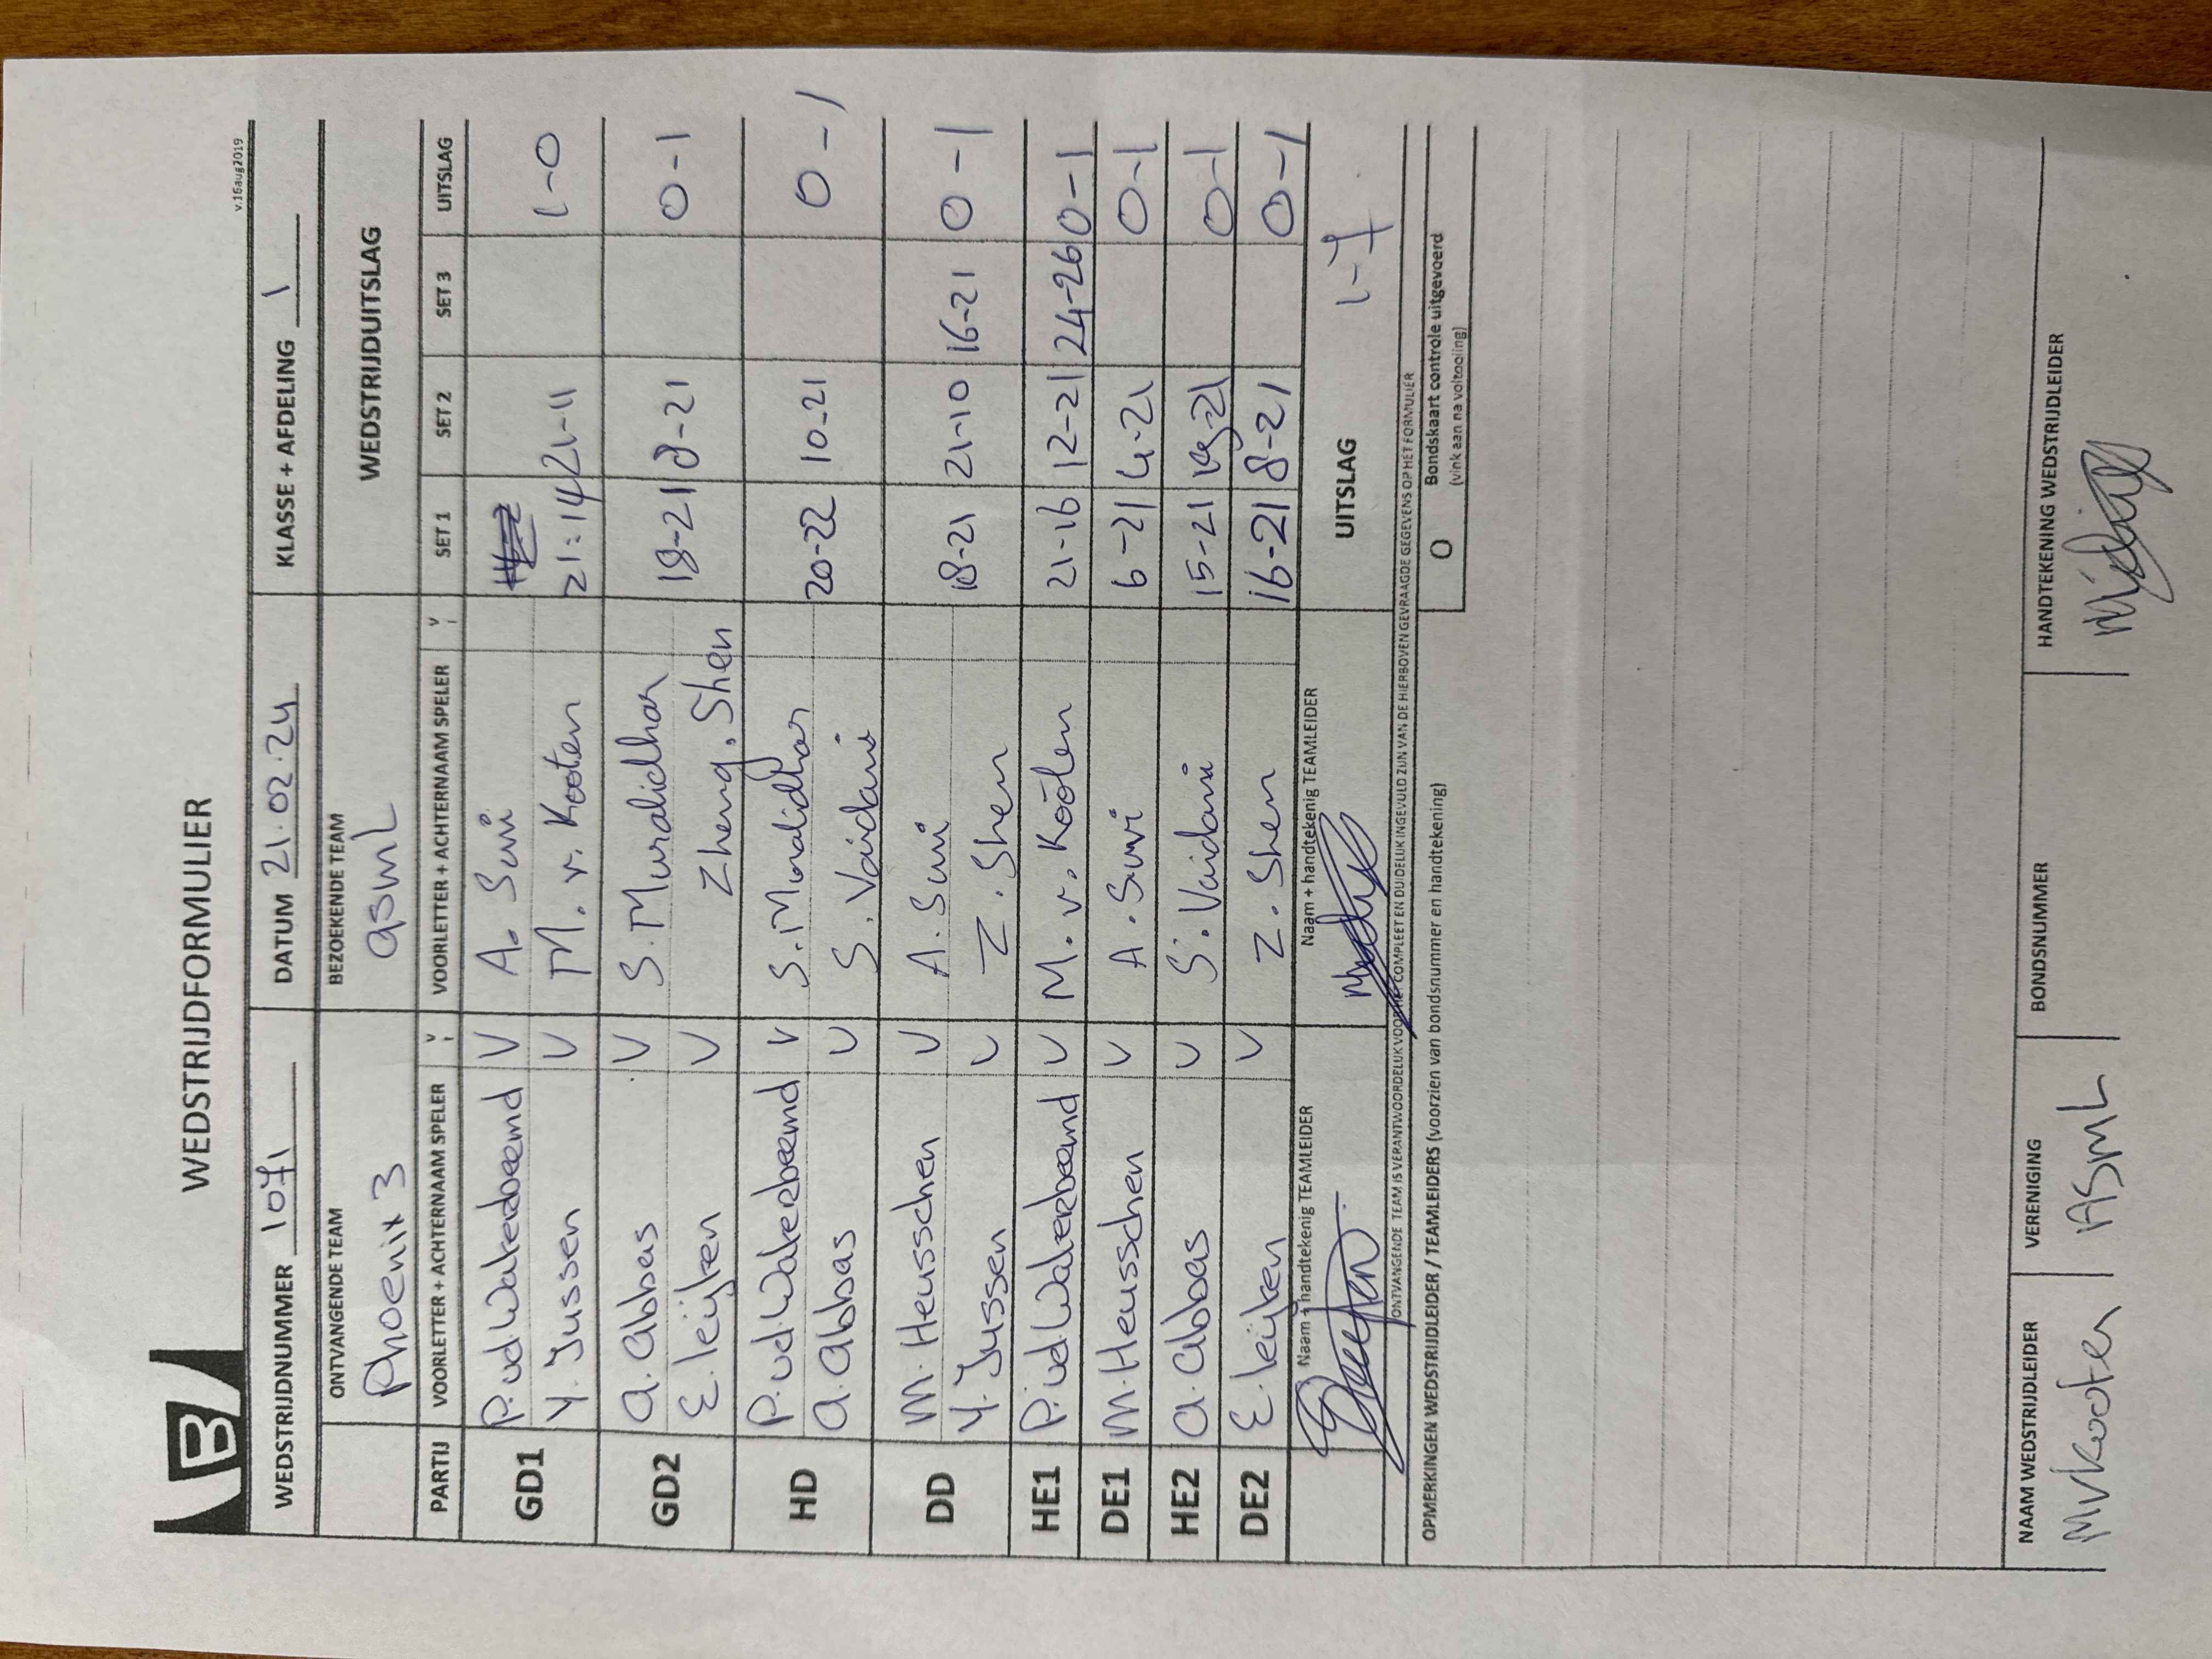 B
WEDSTRIJDFORMULIER
v.16aug2019
WEDSTRIJDNUMMER 1071 DATUM 21.02.24 KLASSE + AFDELING 1
ONTVANGENDE TEAM BEZOEKENDE TEAM WEDSTRIJDUITSLAG
Phoenix 3 asmL
PARTIJ VOORLETTER + ACHTERNAAM SPELER VOORLETTER + ACHTERNAAM SPELER SET 1 SET 2 SET 3 UITSLAG
GD1 P.vd.Wakerbeemd V A. Suvi
Y. Jussen V M. v. Kooten 21:14 21-11 1-0
GD2 a. abbas V S. Muralidhar
E. leijken V Zheng. Shen 18-21 8-21 0-1
HD P.vd.Wakerbeemd V S. Muralidhar
a. abbas V S. Vaidani 20-22 10-21 0-1
DD M. Heusschen V A. Suvi
Y. Jussen V Z. Shen 18-21 21-10 16-21 0-1
HE1 P.vd.Wakerbeemd V M. v. Kooten 21-16 12-21 24-26 0-1
DE1 M. Heusschen V A. Suvi 6-21 4-21 0-1
HE2 a. abbas V S. Vaidani 15-21 0-1
DE2 E. leijken V Z. Shen 16-21 8-21 0-1
Naam + handtekenig TEAMLEIDER Naam + handtekenig TEAMLEIDER UITSLAG 1-7
ONTVANGENDE TEAM IS VERANTWOORDELIJK VOOR HET COMPLEET EN DUIDELIJK INGEVULD ZIJN VAN DE HIERBOVEN GEVRAAGDE GEGEVENS OP HET FORMULIER
OPMERKINGEN WEDSTRIJDLEIDER / TEAMLEIDERS (voorzien van bondsnummer en handtekening)
O Bondskaart controle uitgevoerd
(vink aan na voltooiing)
NAAM WEDSTRIJDLEIDER VERENIGING BONDSNUMMER HANDTEKENING WEDSTRIJDLEIDER
MvKooten ASML